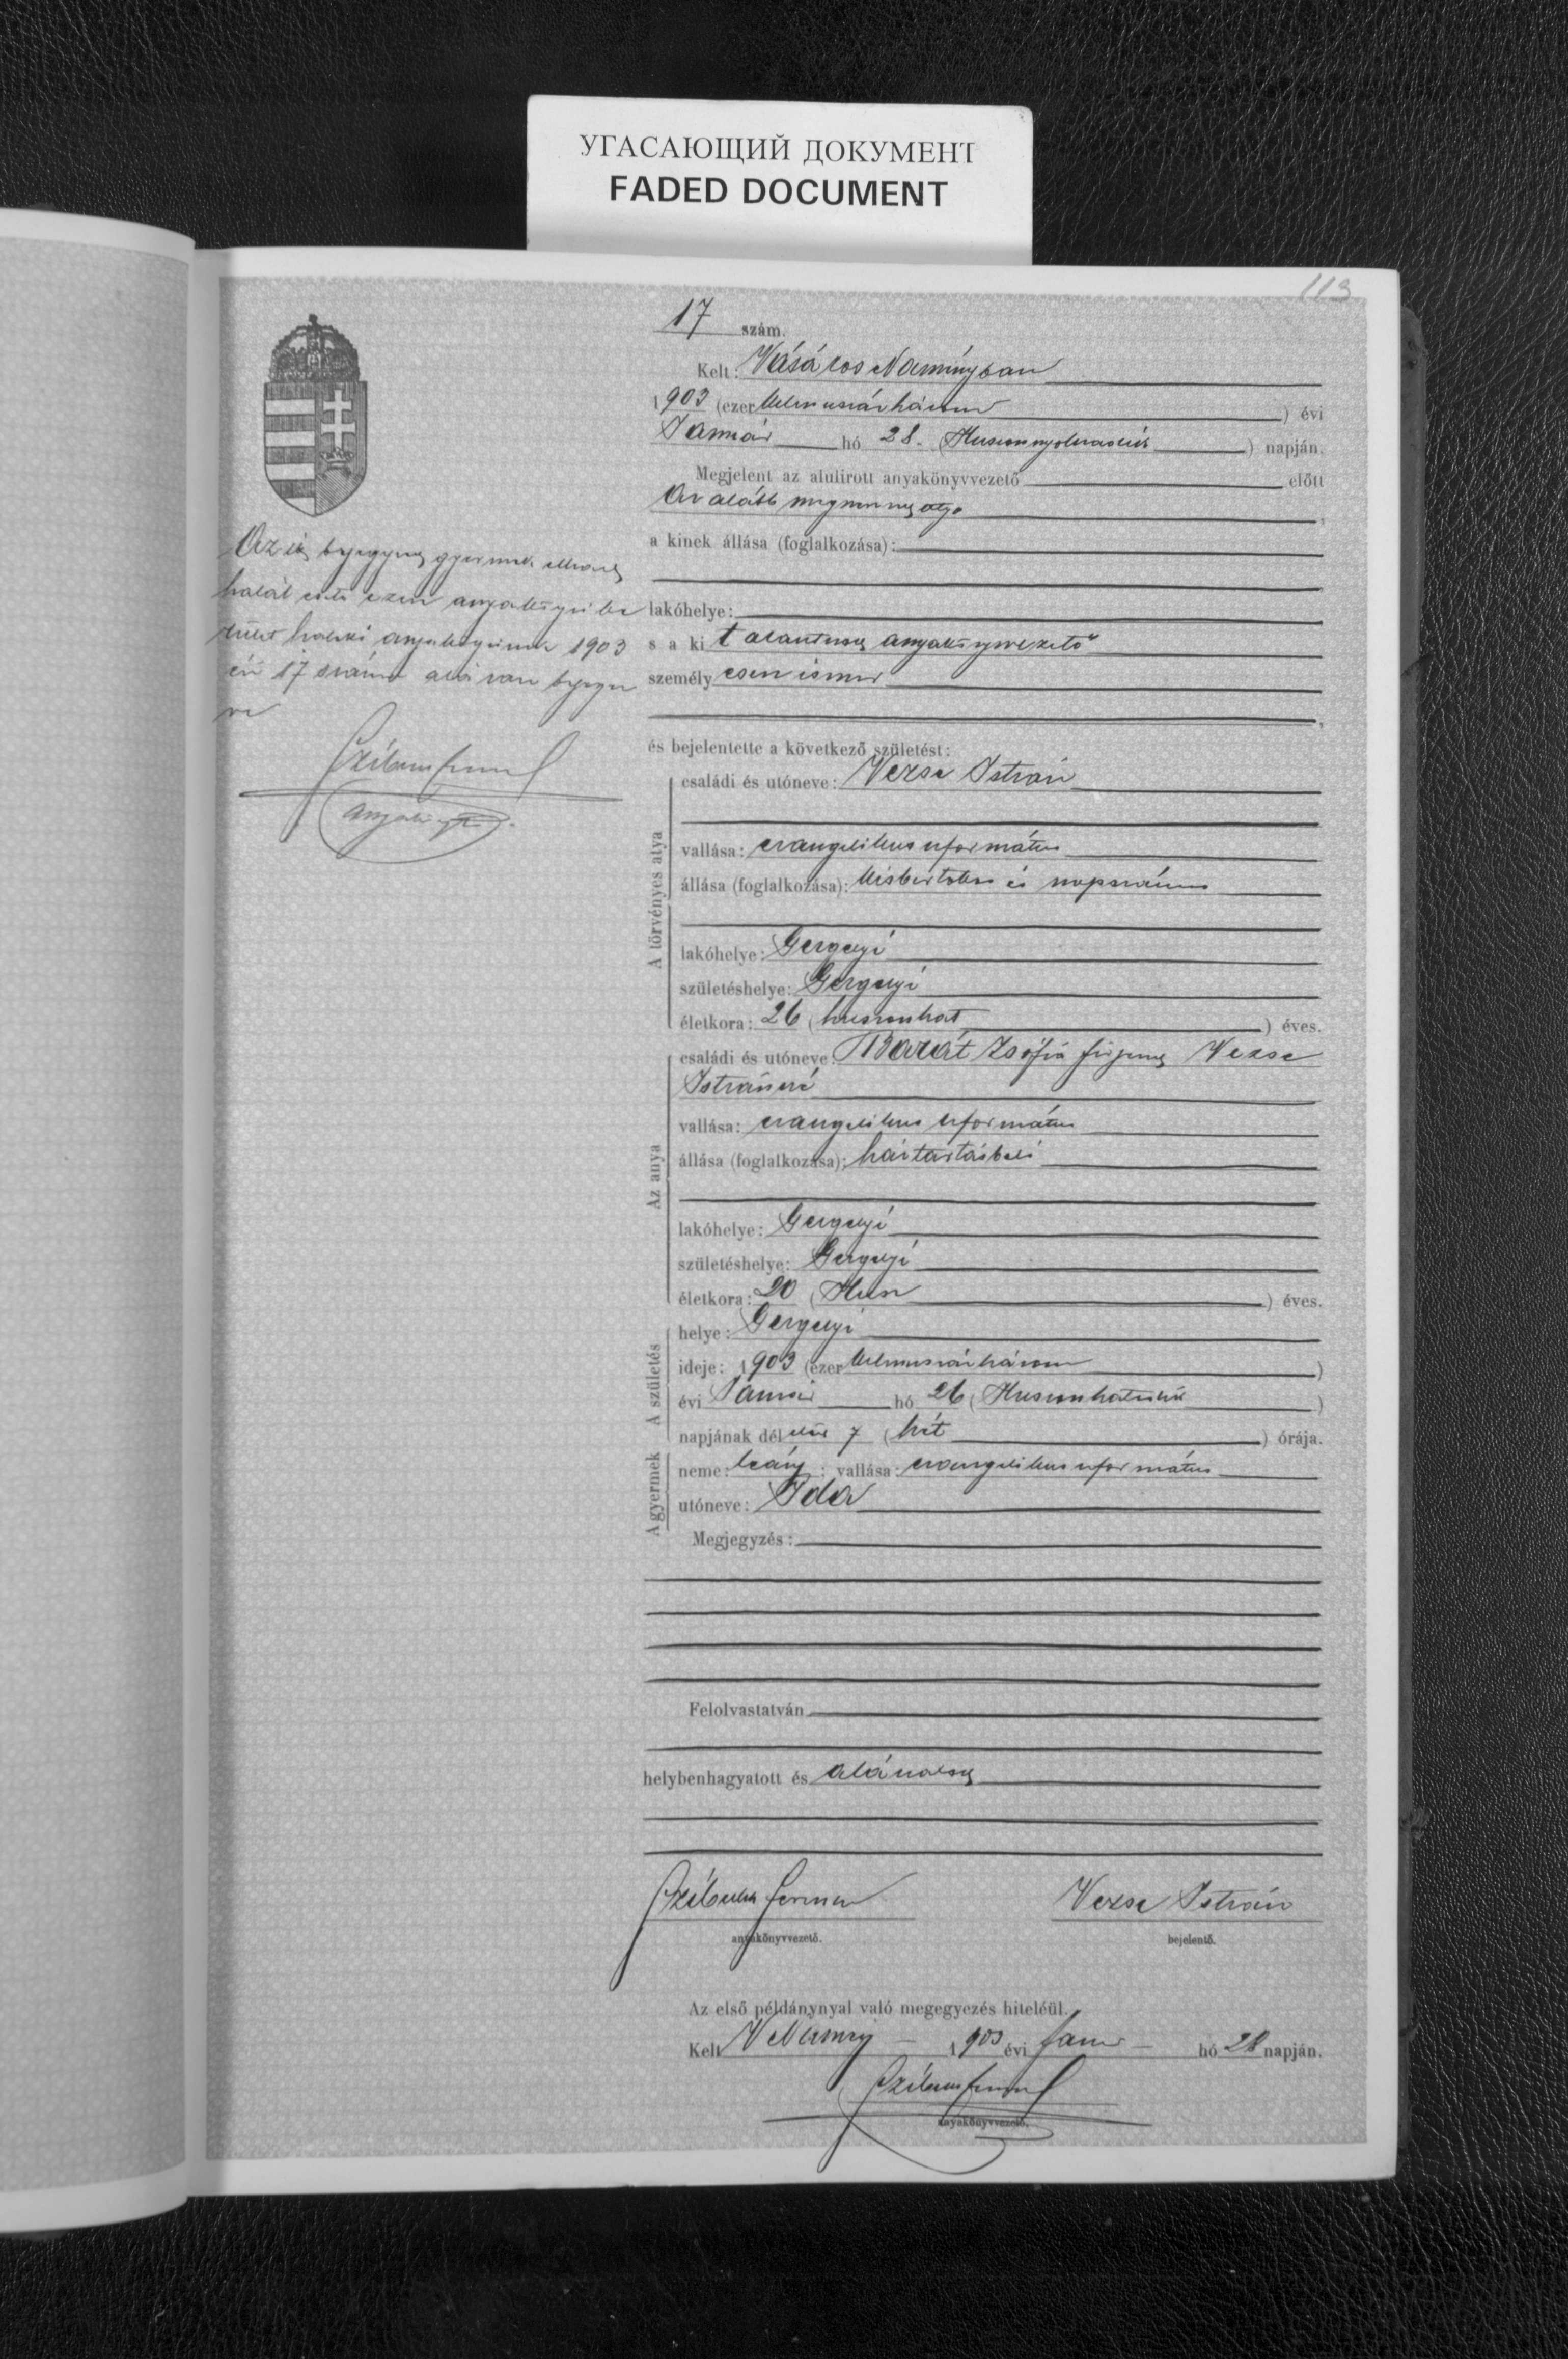 УГАСАЮЩИЙ ДОКУМЕНТ
FADED DOCUMENT
113
17 szám.
Kelt: Vásáros Naményban
1903 (ezer kilencszázhárom) évi
Január hó 28. (Huszonnyolcadik) napján.
Megjelent az alulirott anyakönyvvezető előtt
Az alább megnevezett
a kinek állása (foglalkozása):
lakóhelye:
s a ki t alantirott anyakönyvvezető
személyesen ismer
és bejelentette a következő születést:
A törvényes atya
családi és utóneve: Vezse István
vallása: evangelikus református
állása (foglalkozása): kisbirtokos és napszámos
lakóhelye: Gergelyi
születéshelye: Gergelyi
életkora: 26 (huszonhat) éves.
Az anya
családi és utóneve: Barát Zsófia férjezett Vezse
Istvánné
vallása: evangelikus református
állása (foglalkozása): háztartásbeli
lakóhelye: Gergelyi
születéshelye: Gergelyi
életkora: 20 (Husz) éves.
A születés
helye: Gergelyi
ideje: 1903 (ezer kilencszázhárom)
évi Január hó 26 (Huszonhatodik)
napjának dél előtt 7 (hét) órája.
A gyermek
neme: leány; vallása: evangelikus református
utóneve: Ida
Megjegyzés:
Felolvastatván
helybenhagyatott és aláíratott
anyakönyvvezető.
Vezse István
bejelentő.
Az első példánynyal való megegyezés hiteléül.
Kelt V Namény 1903 évi Január hó 28 napján.
anyakönyvvezető.
gyermek
halál anyakönyvi
halotti anyakönyvének 1903
évi 17 száma alá van bejegyez
ve